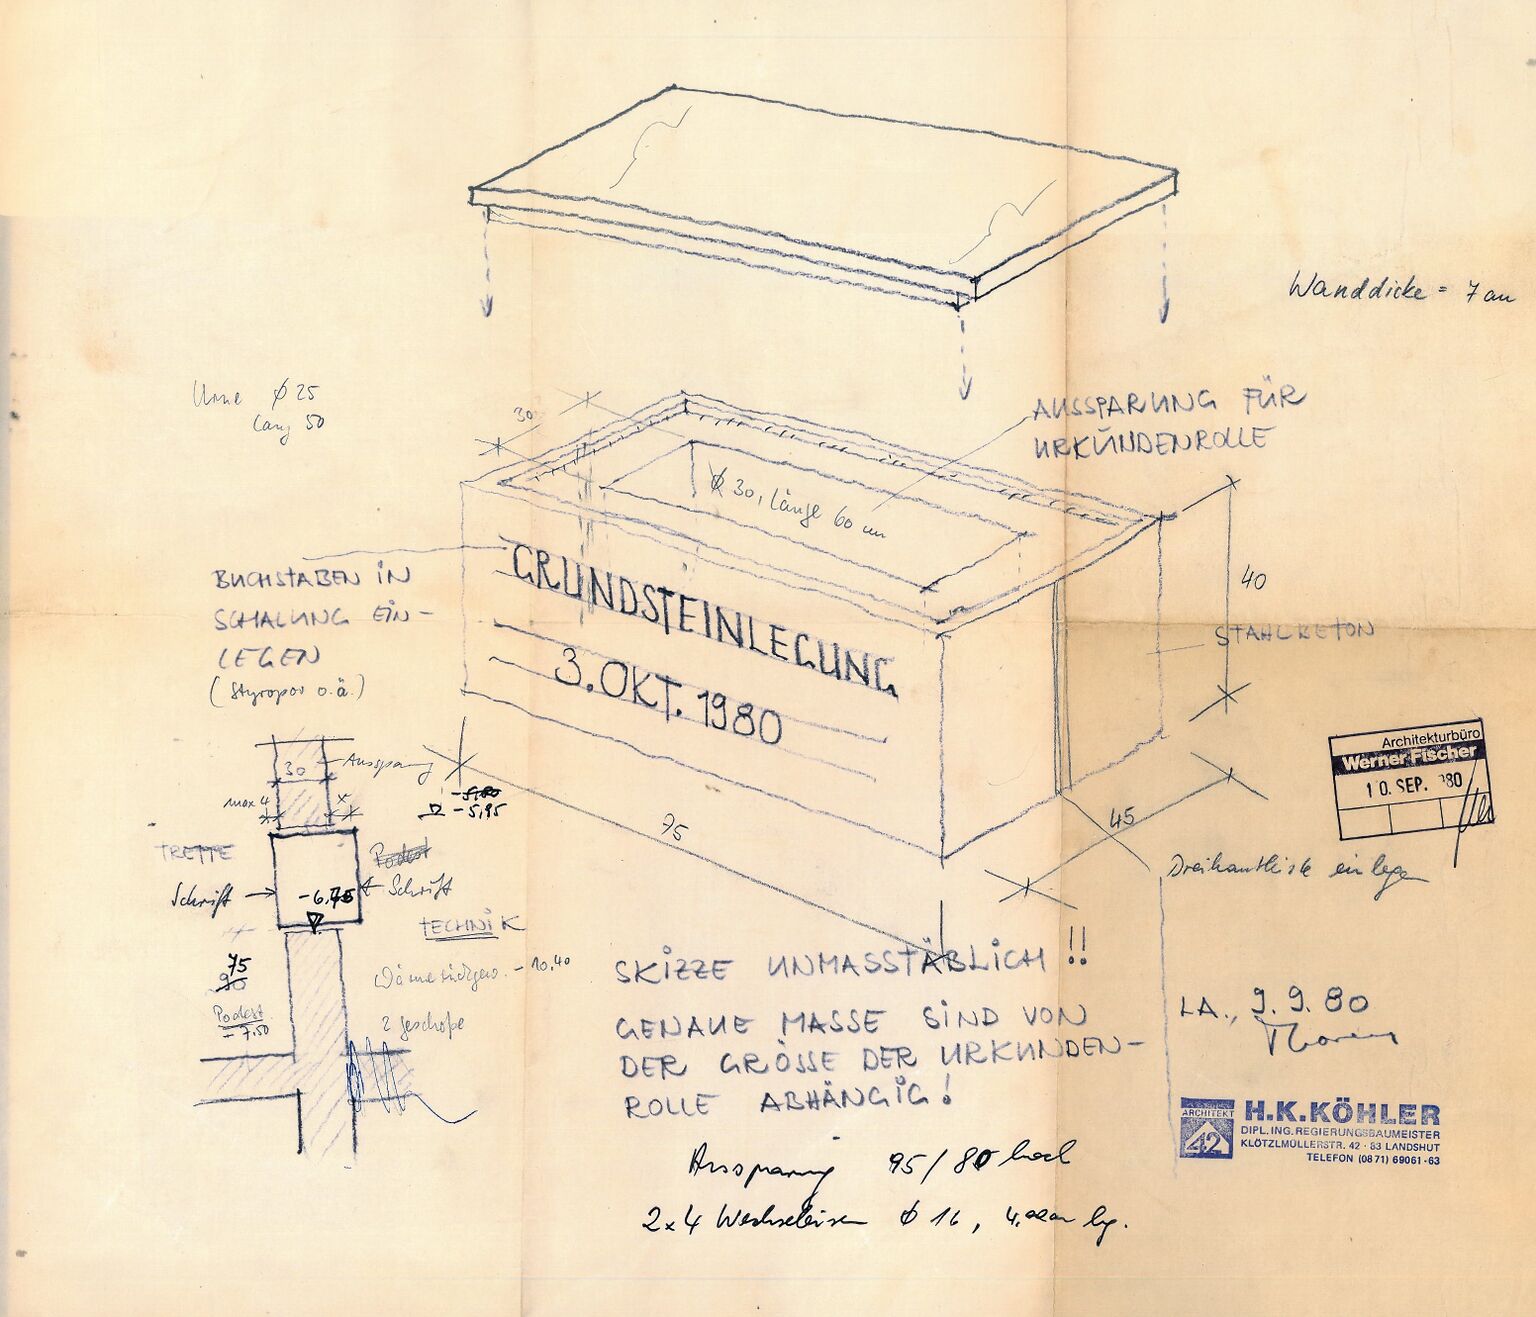 Wanddicke = 7 cm
Urne ϕ 25
lang 50
30
AUSSPARUNG FÜR
URKUNDENROLLE
ϕ 30, Länge 60 cm
40
STAHLBETON
BUCHSTABEN IN
SCHALUNG EIN-
LEGEN
(Styropor o.ä.)
GRUNDSTEINLEGUNG
3. OKT. 1980
Architekturbüro
Werner Fischer
10. SEP. '80
30
Aussparung
max 4
x
-5,95
75
45
Dreikantleiste einlegen
TREPPE
Podest
Schrift
-6,75
Schrift
TECHNIK
75
90
Podest
- 7.50
- 10.40
2 Geschoße
SKIZZE UNMASSTÄBLICH !!
GENAUE MASSE SIND VON
DER GRÖSSE DER URKUNDEN-
ROLLE ABHÄNGIG!
LA., 9. 9. 80
ARCHITEKT
42
H.K.KÖHLER
DIPL.ING.REGIERUNGSBAUMEISTER
KLÖTZLMÜLLERSTR. 42 · 83 LANDSHUT
TELEFON (0871) 69061-63
Aussparung 95/80 hoch
2x4 Wechseleisen ϕ 16, lg.